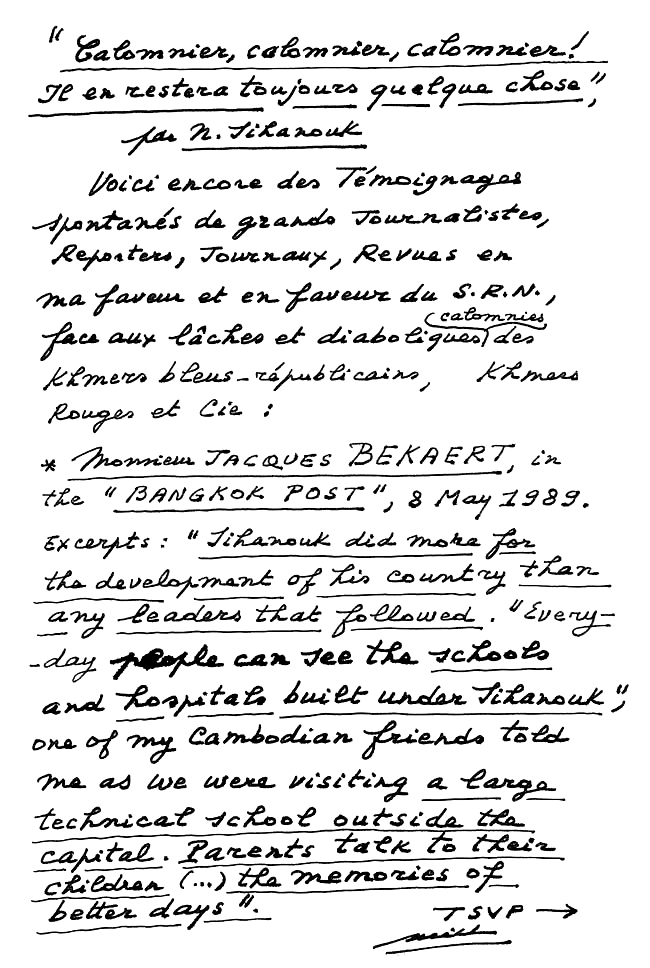 "Calomnier, calomnier, calomnier!
Il en restera toujours quelque chose",
par N. Sihanouk
Voici encore des Témoignages
spontanés de grands Journalistes,
Reporters, Journaux, Revues en
ma faveur et en faveur du S.R.N.,
face aux lâches et diaboliques (calomnies) des
Khmers bleus-républicains, Khmers
Rouges et Cie :
* Monsieur JACQUES BEKAERT, in
the "BANGKOK POST", 8 May 1989.
Excerpts : "Sihanouk did more for
the development of his country than
any leaders that followed. "Every-
-day people can see the schools
and hospitals built under Sihanouk",
one of my Cambodian friends told
me as we were visiting a large
technical school outside the
capital. Parents talk to their
children (...) the memories of
better days".
TSVP →